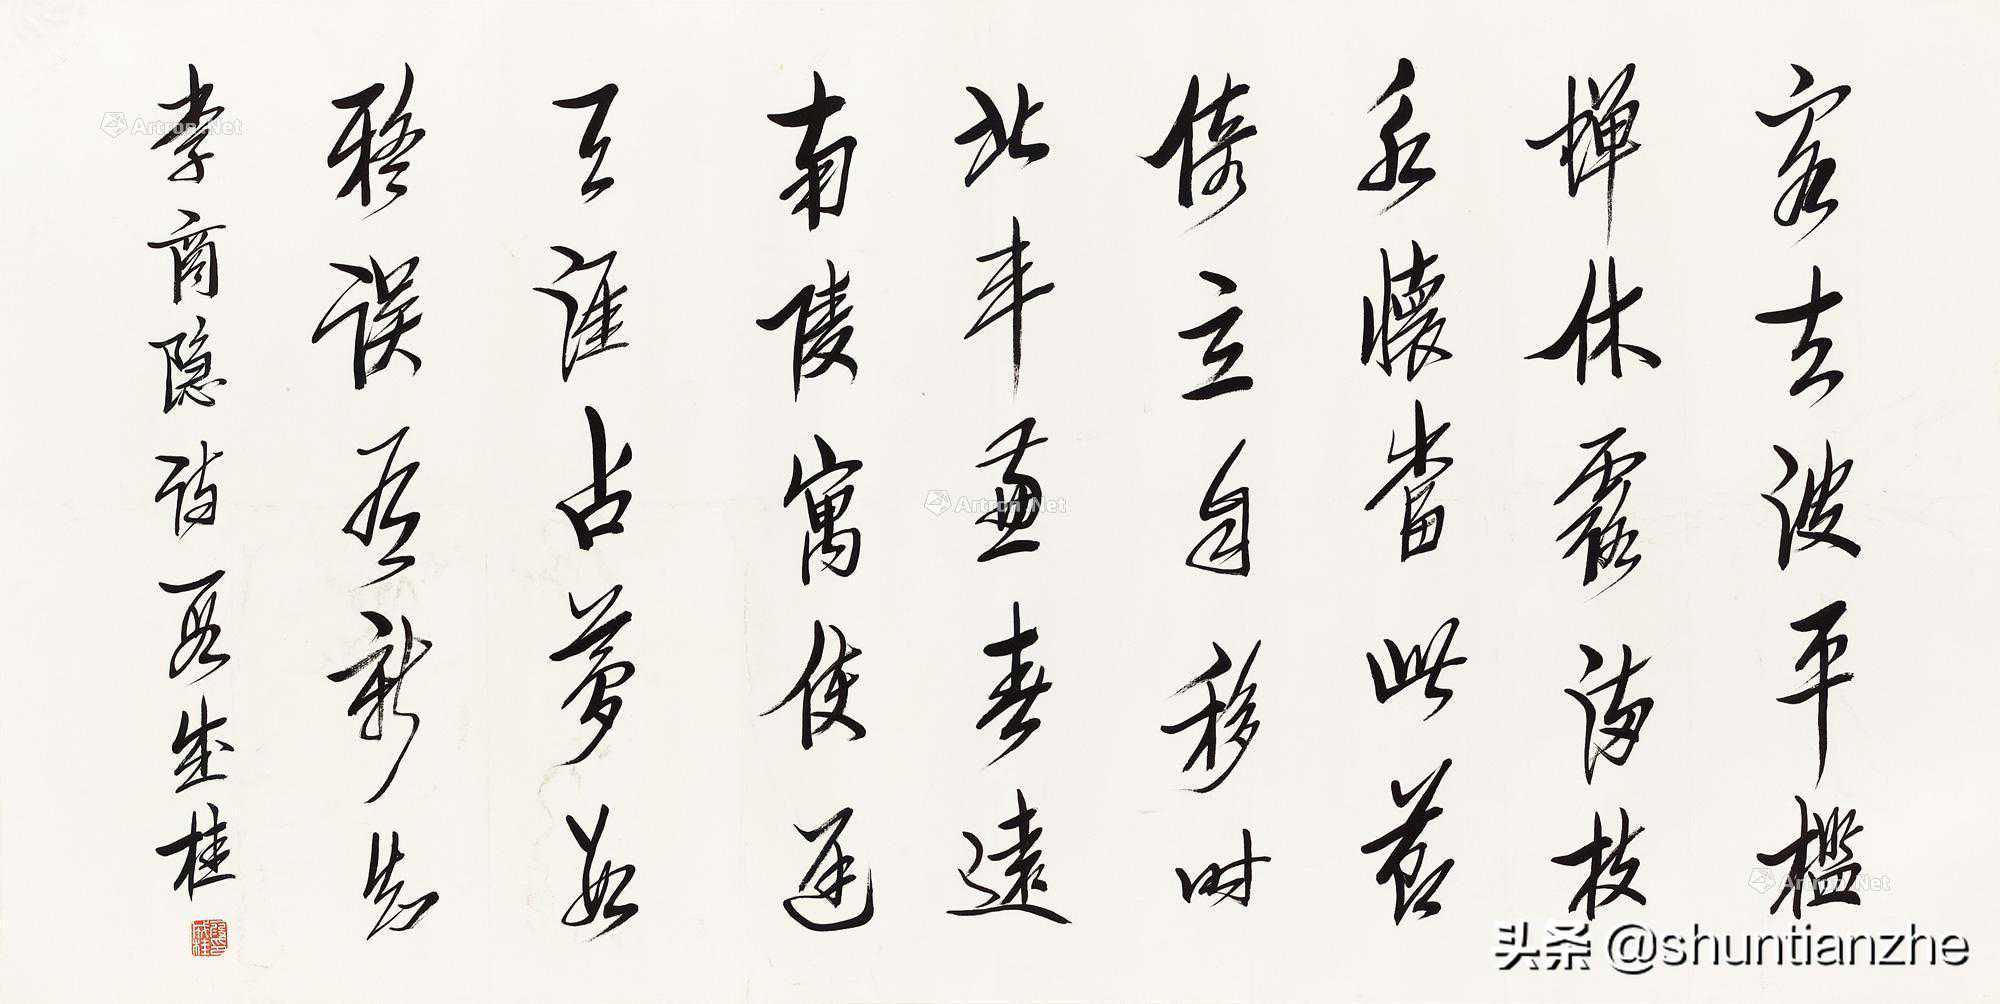 客去波平檻
蝉休露满枝
永懷當此莭
倚立自移时
北斗兼春遠
南陵寓使遲
天涯占夢数
疑误有新知
李商隐诗 段成桂
Artron.Net
Artron.Net
Artron.Net
头条 @shuntianzhe